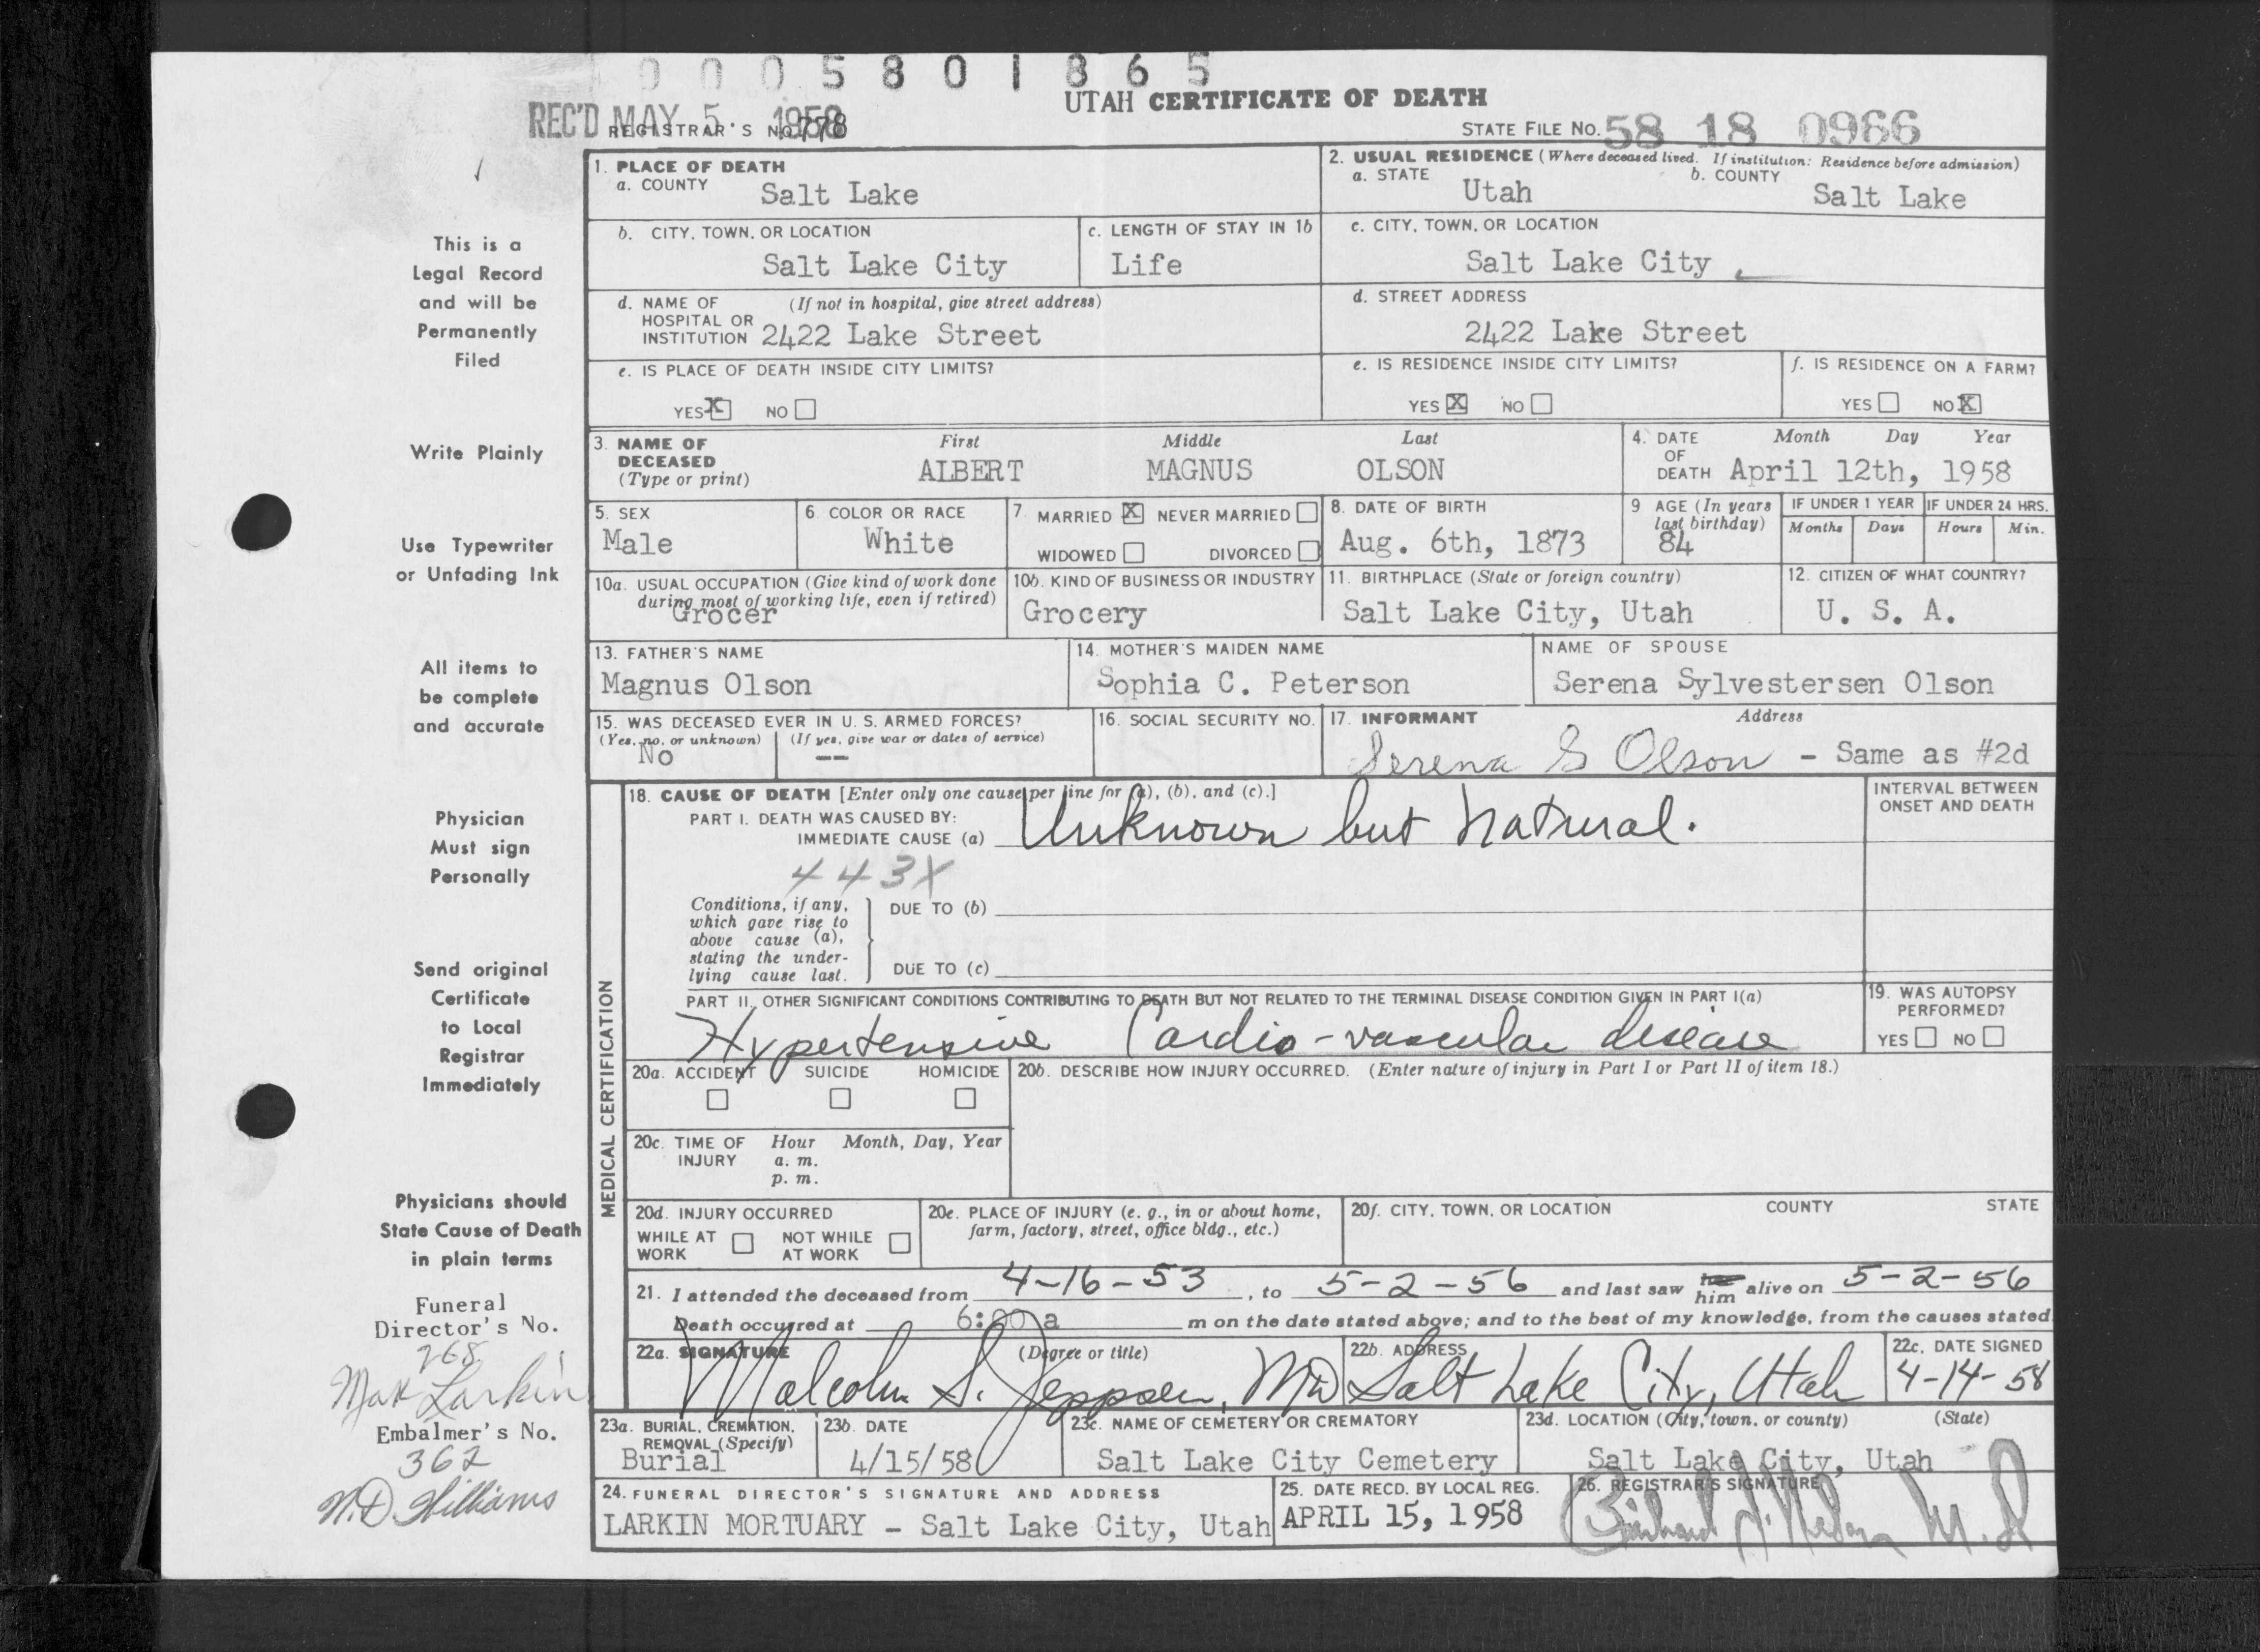 0 0 0 5 8 0 1 8 6 5
UTAH CERTIFICATE OF DEATH
REC'D MAY 5 1958
REGISTRAR'S NO. 778
STATE FILE NO. 58 18 0966
This is a
Legal Record
and will be
Permanently
Filed
Write Plainly
Use Typewriter
or Unfading Ink
All items to
be complete
and accurate
Physician
Must sign
Personally
Send original
Certificate
to Local
Registrar
Immediately
Physicians should
State Cause of Death
in plain terms
Funeral
Director's No.
268
Max Larkin
Embalmer's No.
362
N.D. Williams
1. PLACE OF DEATH
a. COUNTY Salt Lake
2. USUAL RESIDENCE (Where deceased lived. If institution: Residence before admission)
a. STATE Utah b. COUNTY Salt Lake
b. CITY, TOWN, OR LOCATION Salt Lake City
c. LENGTH OF STAY IN 1b Life
c. CITY, TOWN, OR LOCATION Salt Lake City
d. NAME OF (If not in hospital, give street address)
HOSPITAL OR
INSTITUTION 2422 Lake Street
d. STREET ADDRESS
2422 Lake Street
e. IS PLACE OF DEATH INSIDE CITY LIMITS?
YES X NO
e. IS RESIDENCE INSIDE CITY LIMITS?
YES X NO
f. IS RESIDENCE ON A FARM?
YES NO X
3. NAME OF DECEASED (Type or print)
First Middle Last
ALBERT MAGNUS OLSON
4. DATE OF DEATH Month Day Year
April 12th, 1958
5. SEX
Male
6. COLOR OR RACE
White
7. MARRIED X NEVER MARRIED
WIDOWED DIVORCED
8. DATE OF BIRTH
Aug. 6th, 1873
9 AGE (In years last birthday)
84
IF UNDER 1 YEAR
Months Days
IF UNDER 24 HRS.
Hours Min.
10a. USUAL OCCUPATION (Give kind of work done
during most of working life, even if retired)
Grocer
10b. KIND OF BUSINESS OR INDUSTRY
Grocery
11. BIRTHPLACE (State or foreign country)
Salt Lake City, Utah
12. CITIZEN OF WHAT COUNTRY?
U. S. A.
13. FATHER'S NAME
Magnus Olson
14. MOTHER'S MAIDEN NAME
Sophia C. Peterson
NAME OF SPOUSE
Serena Sylvestersen Olson
15. WAS DECEASED EVER IN U. S. ARMED FORCES?
(Yes, no, or unknown) (If yes, give war or dates of service)
No --
16. SOCIAL SECURITY NO.
17. INFORMANT Address
Serena S Olson - Same as #2d
MEDICAL CERTIFICATION
18. CAUSE OF DEATH [Enter only one cause per line for (a), (b), and (c).]
INTERVAL BETWEEN
ONSET AND DEATH
PART I. DEATH WAS CAUSED BY:
IMMEDIATE CAUSE (a) Unknown but natural.
443X
Conditions, if any,
which gave rise to
above cause (a),
stating the under-
lying cause last.
DUE TO (b)
DUE TO (c)
PART II. OTHER SIGNIFICANT CONDITIONS CONTRIBUTING TO DEATH BUT NOT RELATED TO THE TERMINAL DISEASE CONDITION GIVEN IN PART I(a)
Hypertensive Cardio-vascular disease
19. WAS AUTOPSY
PERFORMED?
YES NO
20a. ACCIDENT SUICIDE HOMICIDE
20b. DESCRIBE HOW INJURY OCCURRED. (Enter nature of injury in Part I or Part II of item 18.)
20c. TIME OF INJURY Hour Month, Day, Year
a. m.
p. m.
20d. INJURY OCCURRED
WHILE AT WORK NOT WHILE AT WORK
20e. PLACE OF INJURY (e. g., in or about home,
farm, factory, street, office bldg., etc.)
20f. CITY, TOWN, OR LOCATION COUNTY STATE
21. I attended the deceased from 4-16-53, to 5-2-56 and last saw him alive on 5-2-56
Death occurred at 6:00 a m on the date stated above; and to the best of my knowledge, from the causes stated
22a. SIGNATURE (Degree or title)
Malcolm S. Jeppsen, MD
22b. ADDRESS
Salt Lake City, Utah
22c. DATE SIGNED
4-14-58
23a. BURIAL, CREMATION,
REMOVAL (Specify)
Burial
23b. DATE
4/15/58
23c. NAME OF CEMETERY OR CREMATORY
Salt Lake City Cemetery
23d. LOCATION (City, town, or county) (State)
Salt Lake City, Utah
24. FUNERAL DIRECTOR'S SIGNATURE AND ADDRESS
LARKIN MORTUARY - Salt Lake City, Utah
25. DATE RECD. BY LOCAL REG.
APRIL 15, 1958
26. REGISTRAR'S SIGNATURE
M. D